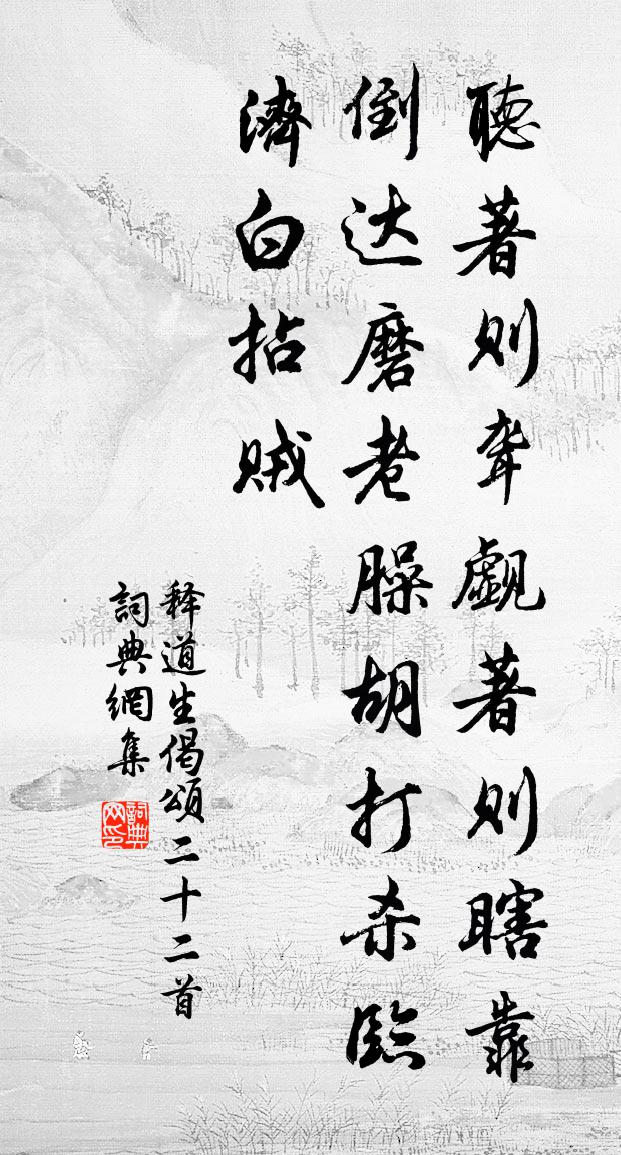 聽著則聋覷著則瞎靠
倒达磨老臊胡打杀臨
濟白拈贼
释道生偈頌二十二首
詞典網集
詞典网印